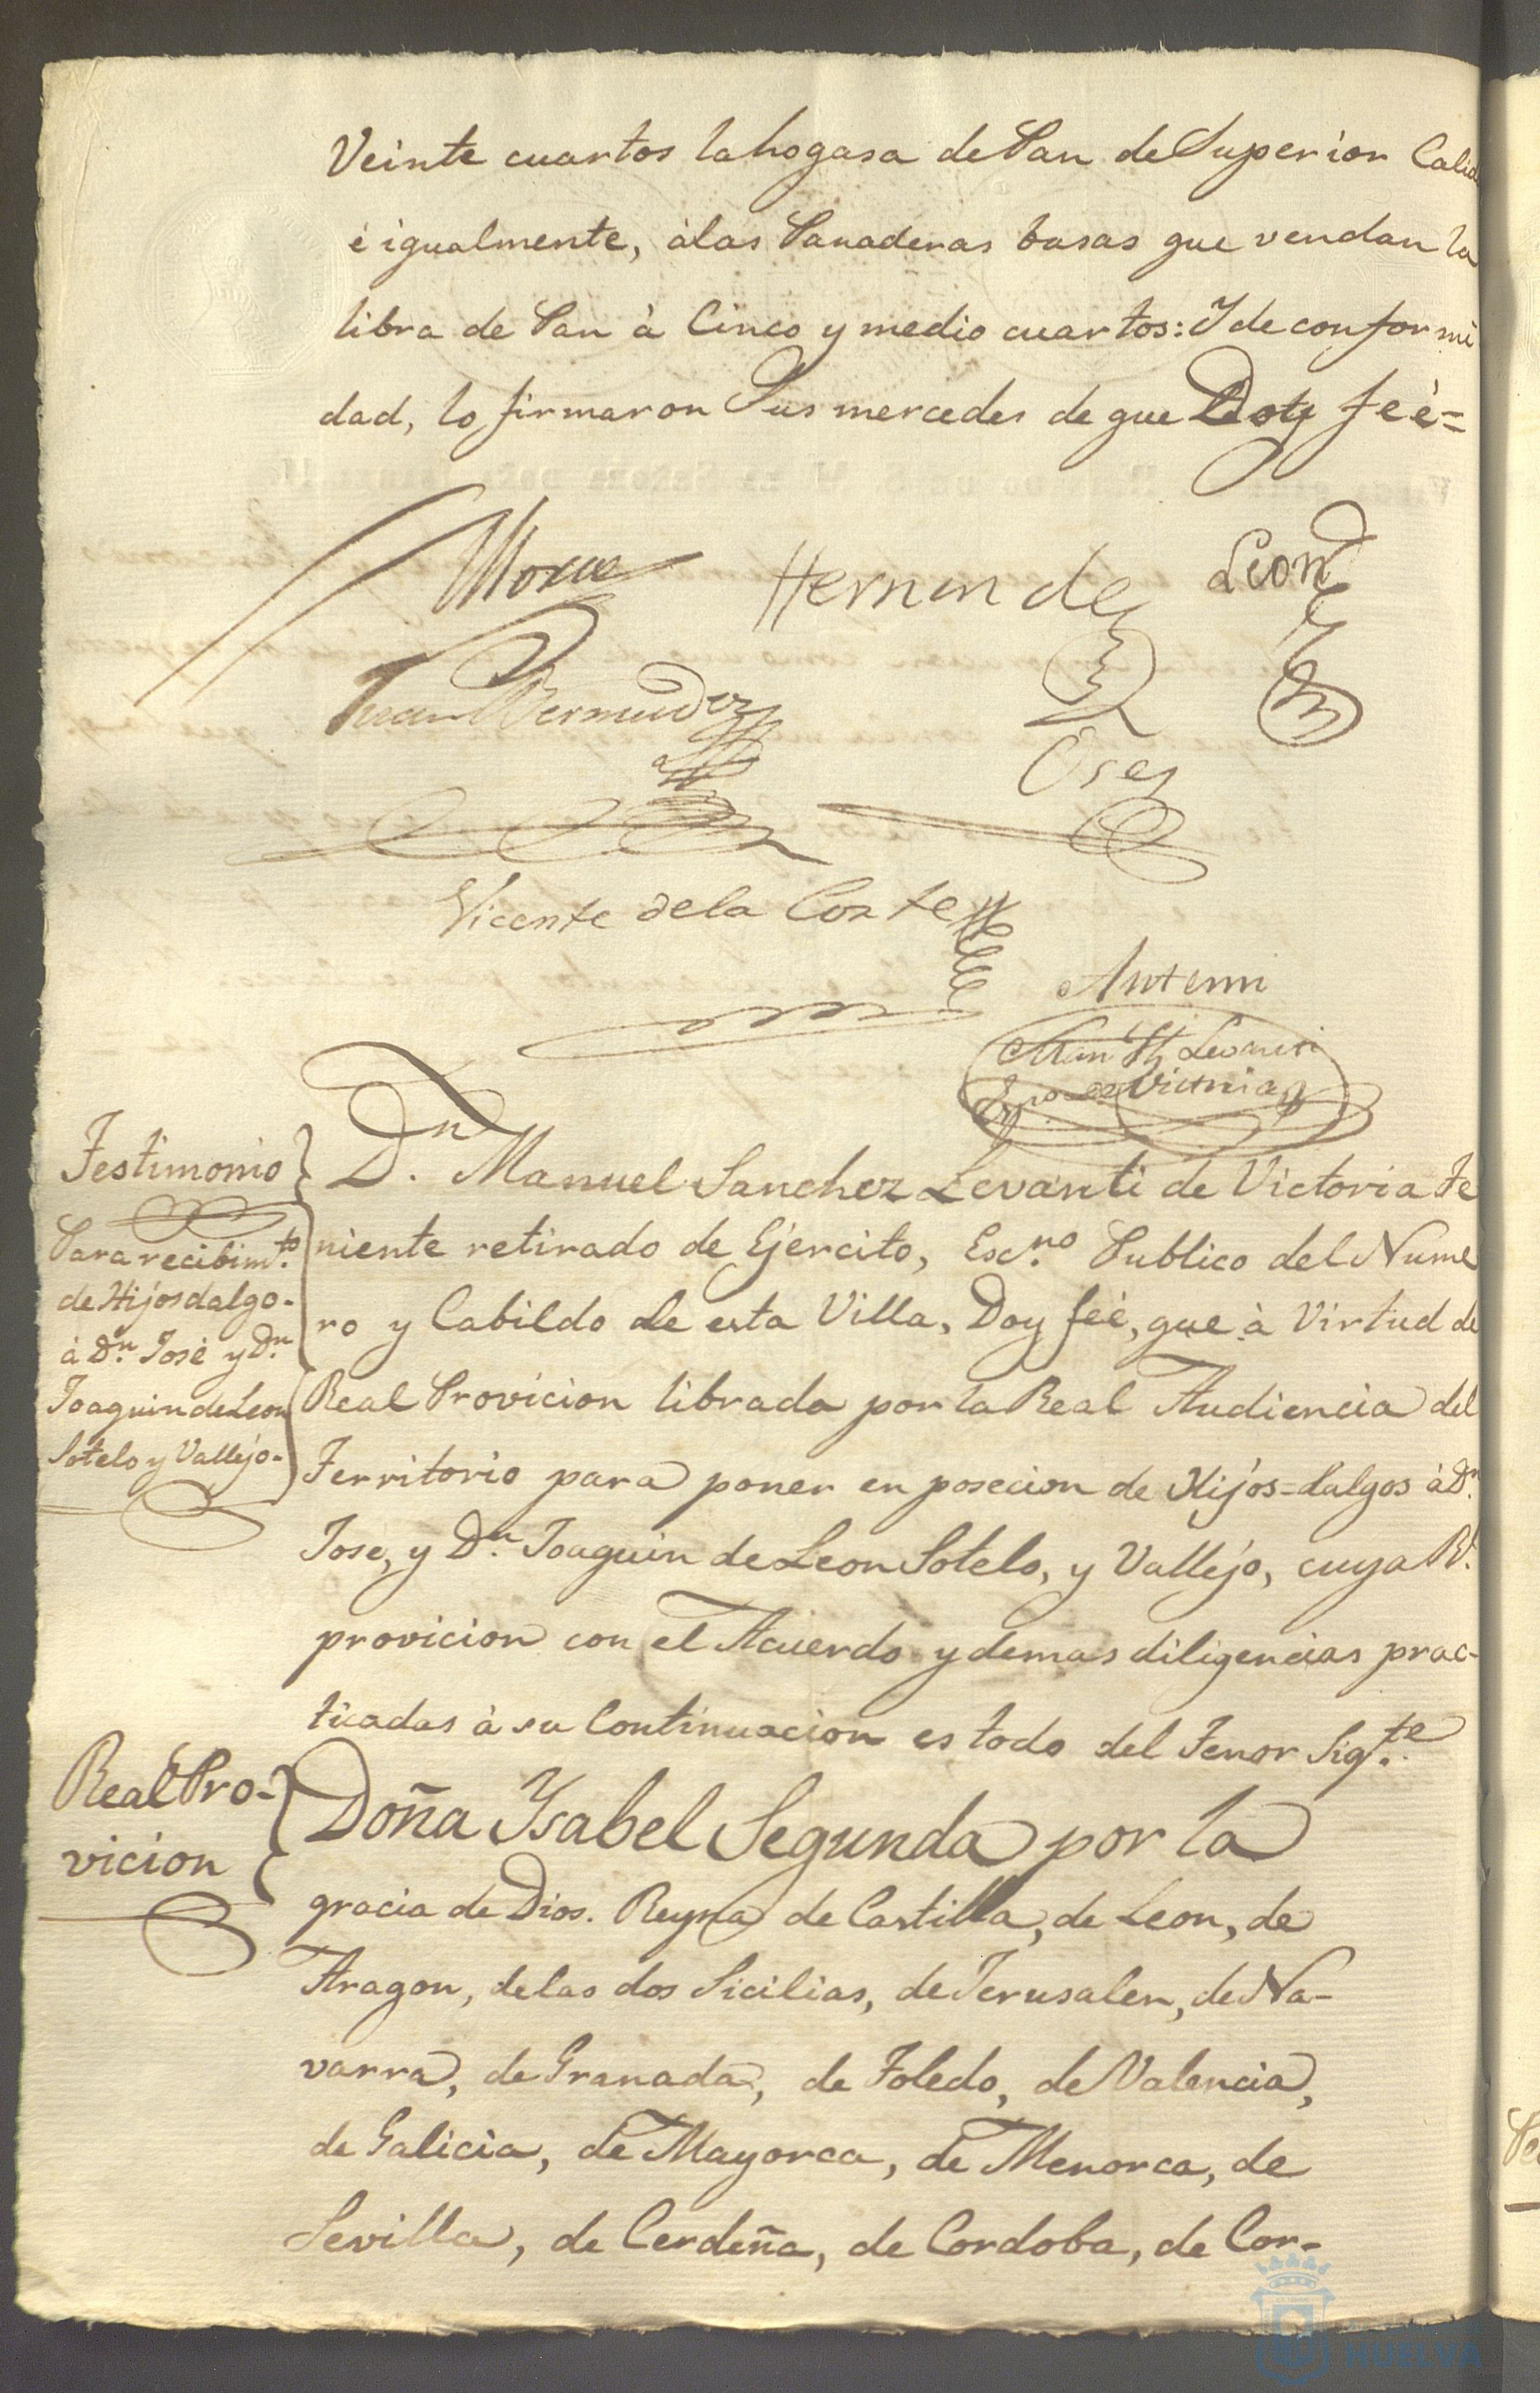 Veinte cuartos la hogasa de Pan de Superior Calid
è igualmente, à las Panaderas basas que vendan la
libra de Pan à Cinco y medio cuartos: Y de conformi
dad, lo firmaron Sus mercedes de que Doy feè=
Hernandez
Leon
Juan Bermudez
Oses
Vicente de la Corte
Antemi
Testimonio
Para recibim.to
de Hijosdalgo.
à D.n José y D.n
Joaquin de Leon
Sotelo y Vallejo.
D.n Manuel Sanchez Levanti de Victoria Te
niente retirado de Ejercito, Esc.no Publico del Nume
ro y Cabildo de esta Villa, Doy feè, que à Virtud de
Real Provicion librada por la Real Audiencia del
Territorio para poner en posecion de Hijos=dalgos à D.n
Jose, y D.n Joaquin de Leon Sotelo, y Vallejo, cuya R.l
provicion con el Acuerdo y demas diligencias prac-
ticadas à su Continuacion es todo del Tenor Sig.te
Real Pro-
vicion
Doña Ysabel Segunda por la
gracia de Dios. Reyna de Castilla, de Leon, de
Aragon, de las dos Sicilias, de Jerusalen, de Na-
varra, de Granada, de Toledo, de Valencia,
de Galicia, de Mayorca, de Menorca, de
Sevilla, de Cerdeña, de Cordoba, de Cor-
HUELVA